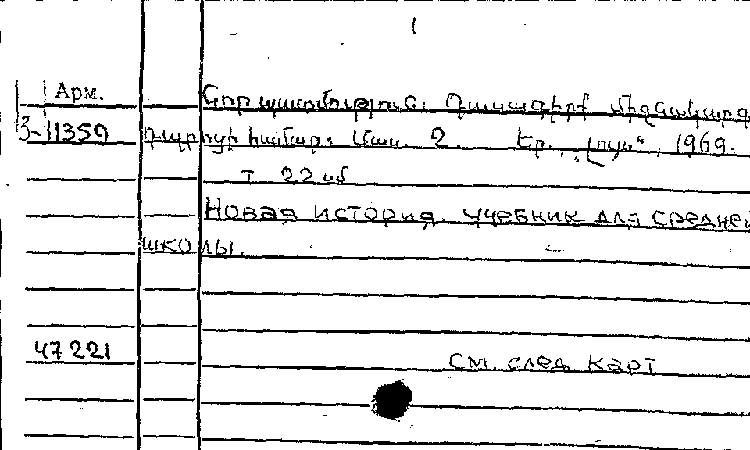 1
Арм. Նոր պատմություն։ Դասագիրք միջնակարգ
3-11359 դպրոցի համար։ Մաս. 2. Եր. „Լույս“, 1969.
т 22 սմ
Новая история. Учебник для средней
школы.
47221 См. след. карт